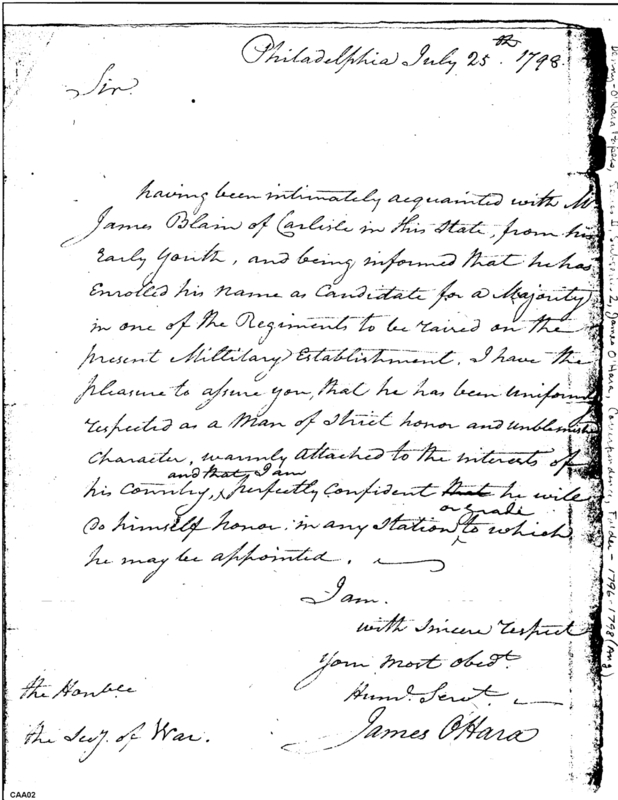 Philadelphia July 25th. 1798.
Sir.
having been intimately acquainted with Mr
James Blain of Carlisle in this State, from his
Early Youth, and being informed that he has
Enrolled his Name as Candidate for a Majority
in one of the Regiments to be raised on the
present Millitary Establishment. I have the
pleasure to assure you, that he has been uniformly
respected as a Man of Strict honor and unblemished
Character, warmly attached to the interests of
and that I am
his Country, perfectly Confident that he will
or grade
do himself honor in any Station to which
he may be appointed.
I am.
with Sincere respect
Your most obedt.
Huml. Servt.
James O'Hara
the Honble
the Secy. of War.
Denny-O'Hara Papers, Series II, Subseries 2, James O'Hara, Correspondence, Folder - 1796-1798 (Aug)
CAA02